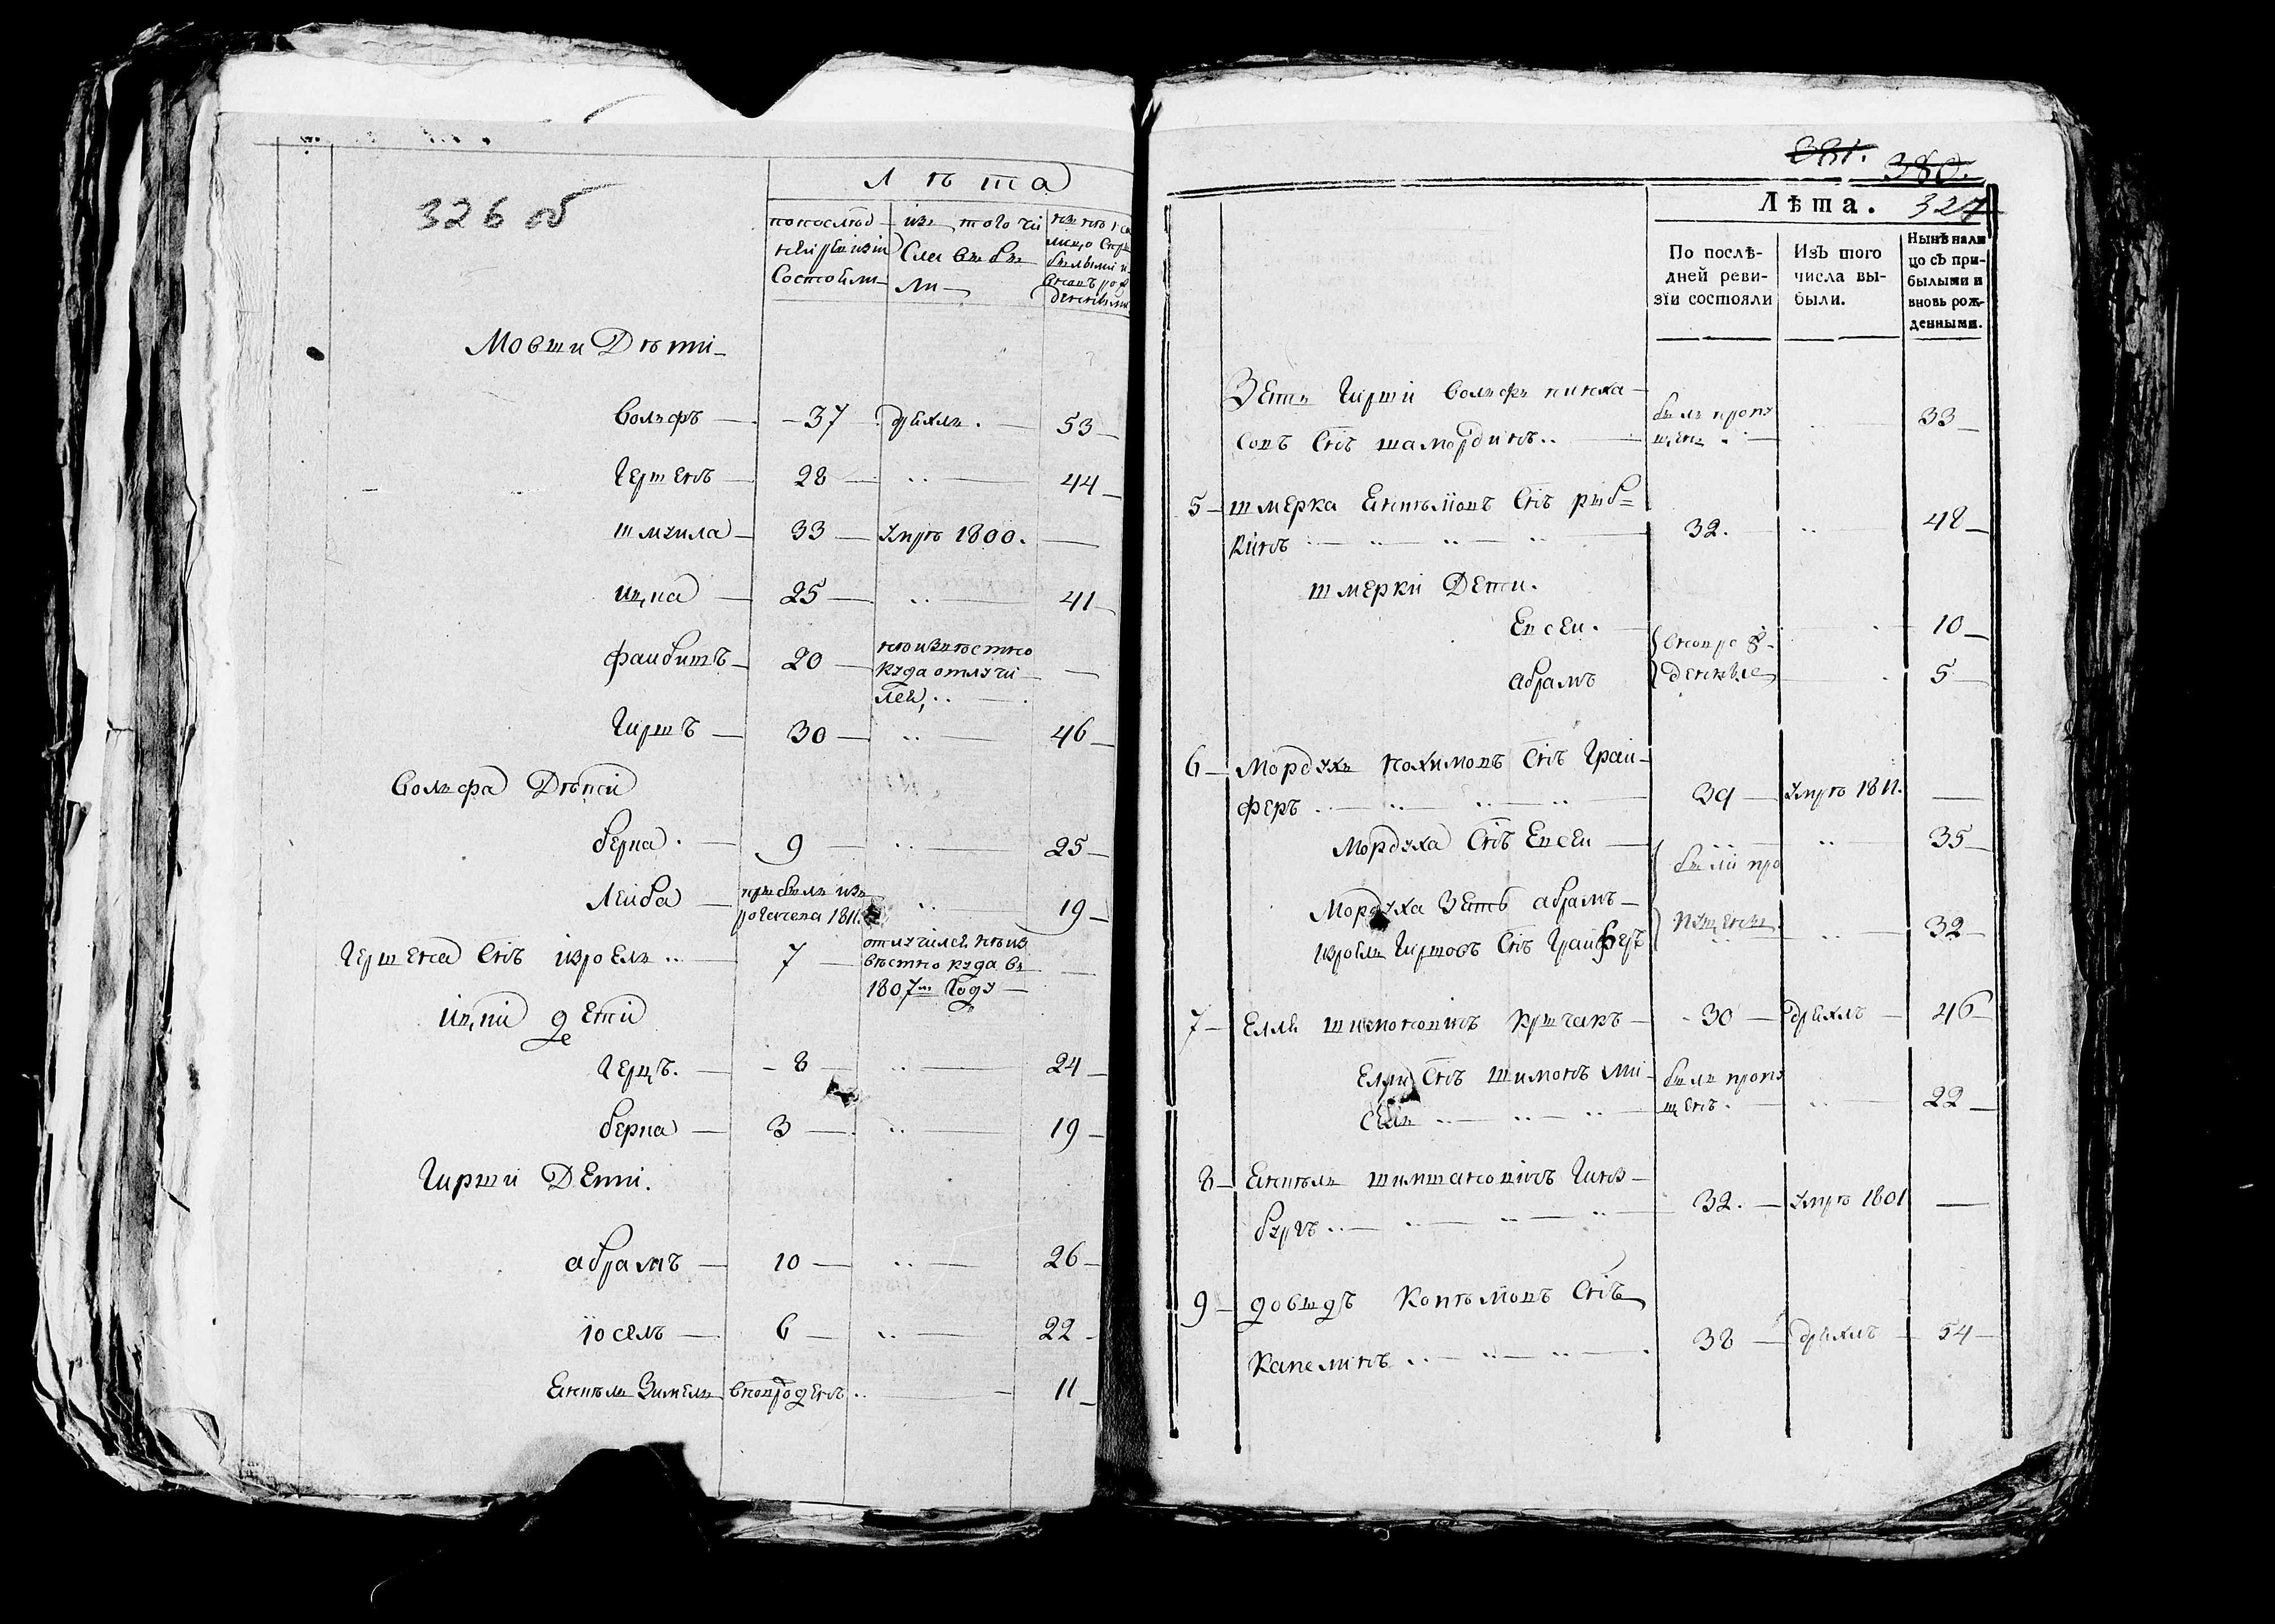 326 об
Лѣта
попослѣд
ней ревизiи
Состояли
изъ того чи
Сла выбы
ли
Мовши Дѣти
Вольфъ — 37 дряхлъ. — 53
Гершенъ — 28 — 44
шмуила — 33 — умре 1800. —
ицка — 25 — 41
файбишъ — 20 — неизвѣстно
куда отлучи
лся, —
Гиршъ — 30 — 46
Вольфа Дѣти
берка. — 9 — 25
Лейба — прибылъ изъ
рогачева 1811. — 19
Гершена Снъ израель — 7 — отлучился неиз
вѣстно куда въ
1807м Году —
ицки дети
Герцъ. — 8 — 24
берка — 3 — 19
Гирши Дети.
абрамъ — 10 — 26
iоселъ — 6 — 22
Янкель Зимель вновьрожденъ — 11
381.
380.
Лѣта. 327
По послѣ-
дней реви-
зiи состояли
Изъ того
числа вы-
были.
Нынѣ нали
цо съ при-
былыми и
вновь рож-
денными.
Зять Гирши вольфъ пинха
совъ Снъ шамординъ — былъ пропу
щенъ — 33
5 — шмерка Янкелiовъ Снъ рыб=
кинъ — 32. — 48
шмерки Дети.
Евсей. — 10
абрамъ — 5
вновь рож
денные
6 — Мордухъ нохимовъ Снъ Грай-
феръ — 39 — умре 1811. —
Мордуха Снъ Евсей — 35
были про
Мордуха Зять абрамъ —
израиль Гиршовъ Снъ Грайферъ пущены — 32
7 — Елля шимоновичъ кришчакъ — 30 — дряхлъ — 46
Елли Снъ шимонъ Ми
сѣй — былъ пропу
щенъ. — 22
8 — Янкель шимшановичъ Гинз-
бургъ — 32. — умре 1801 —
9 — довидъ Копелiовъ Снъ
Капелинъ — 38 — дряхлъ — 54